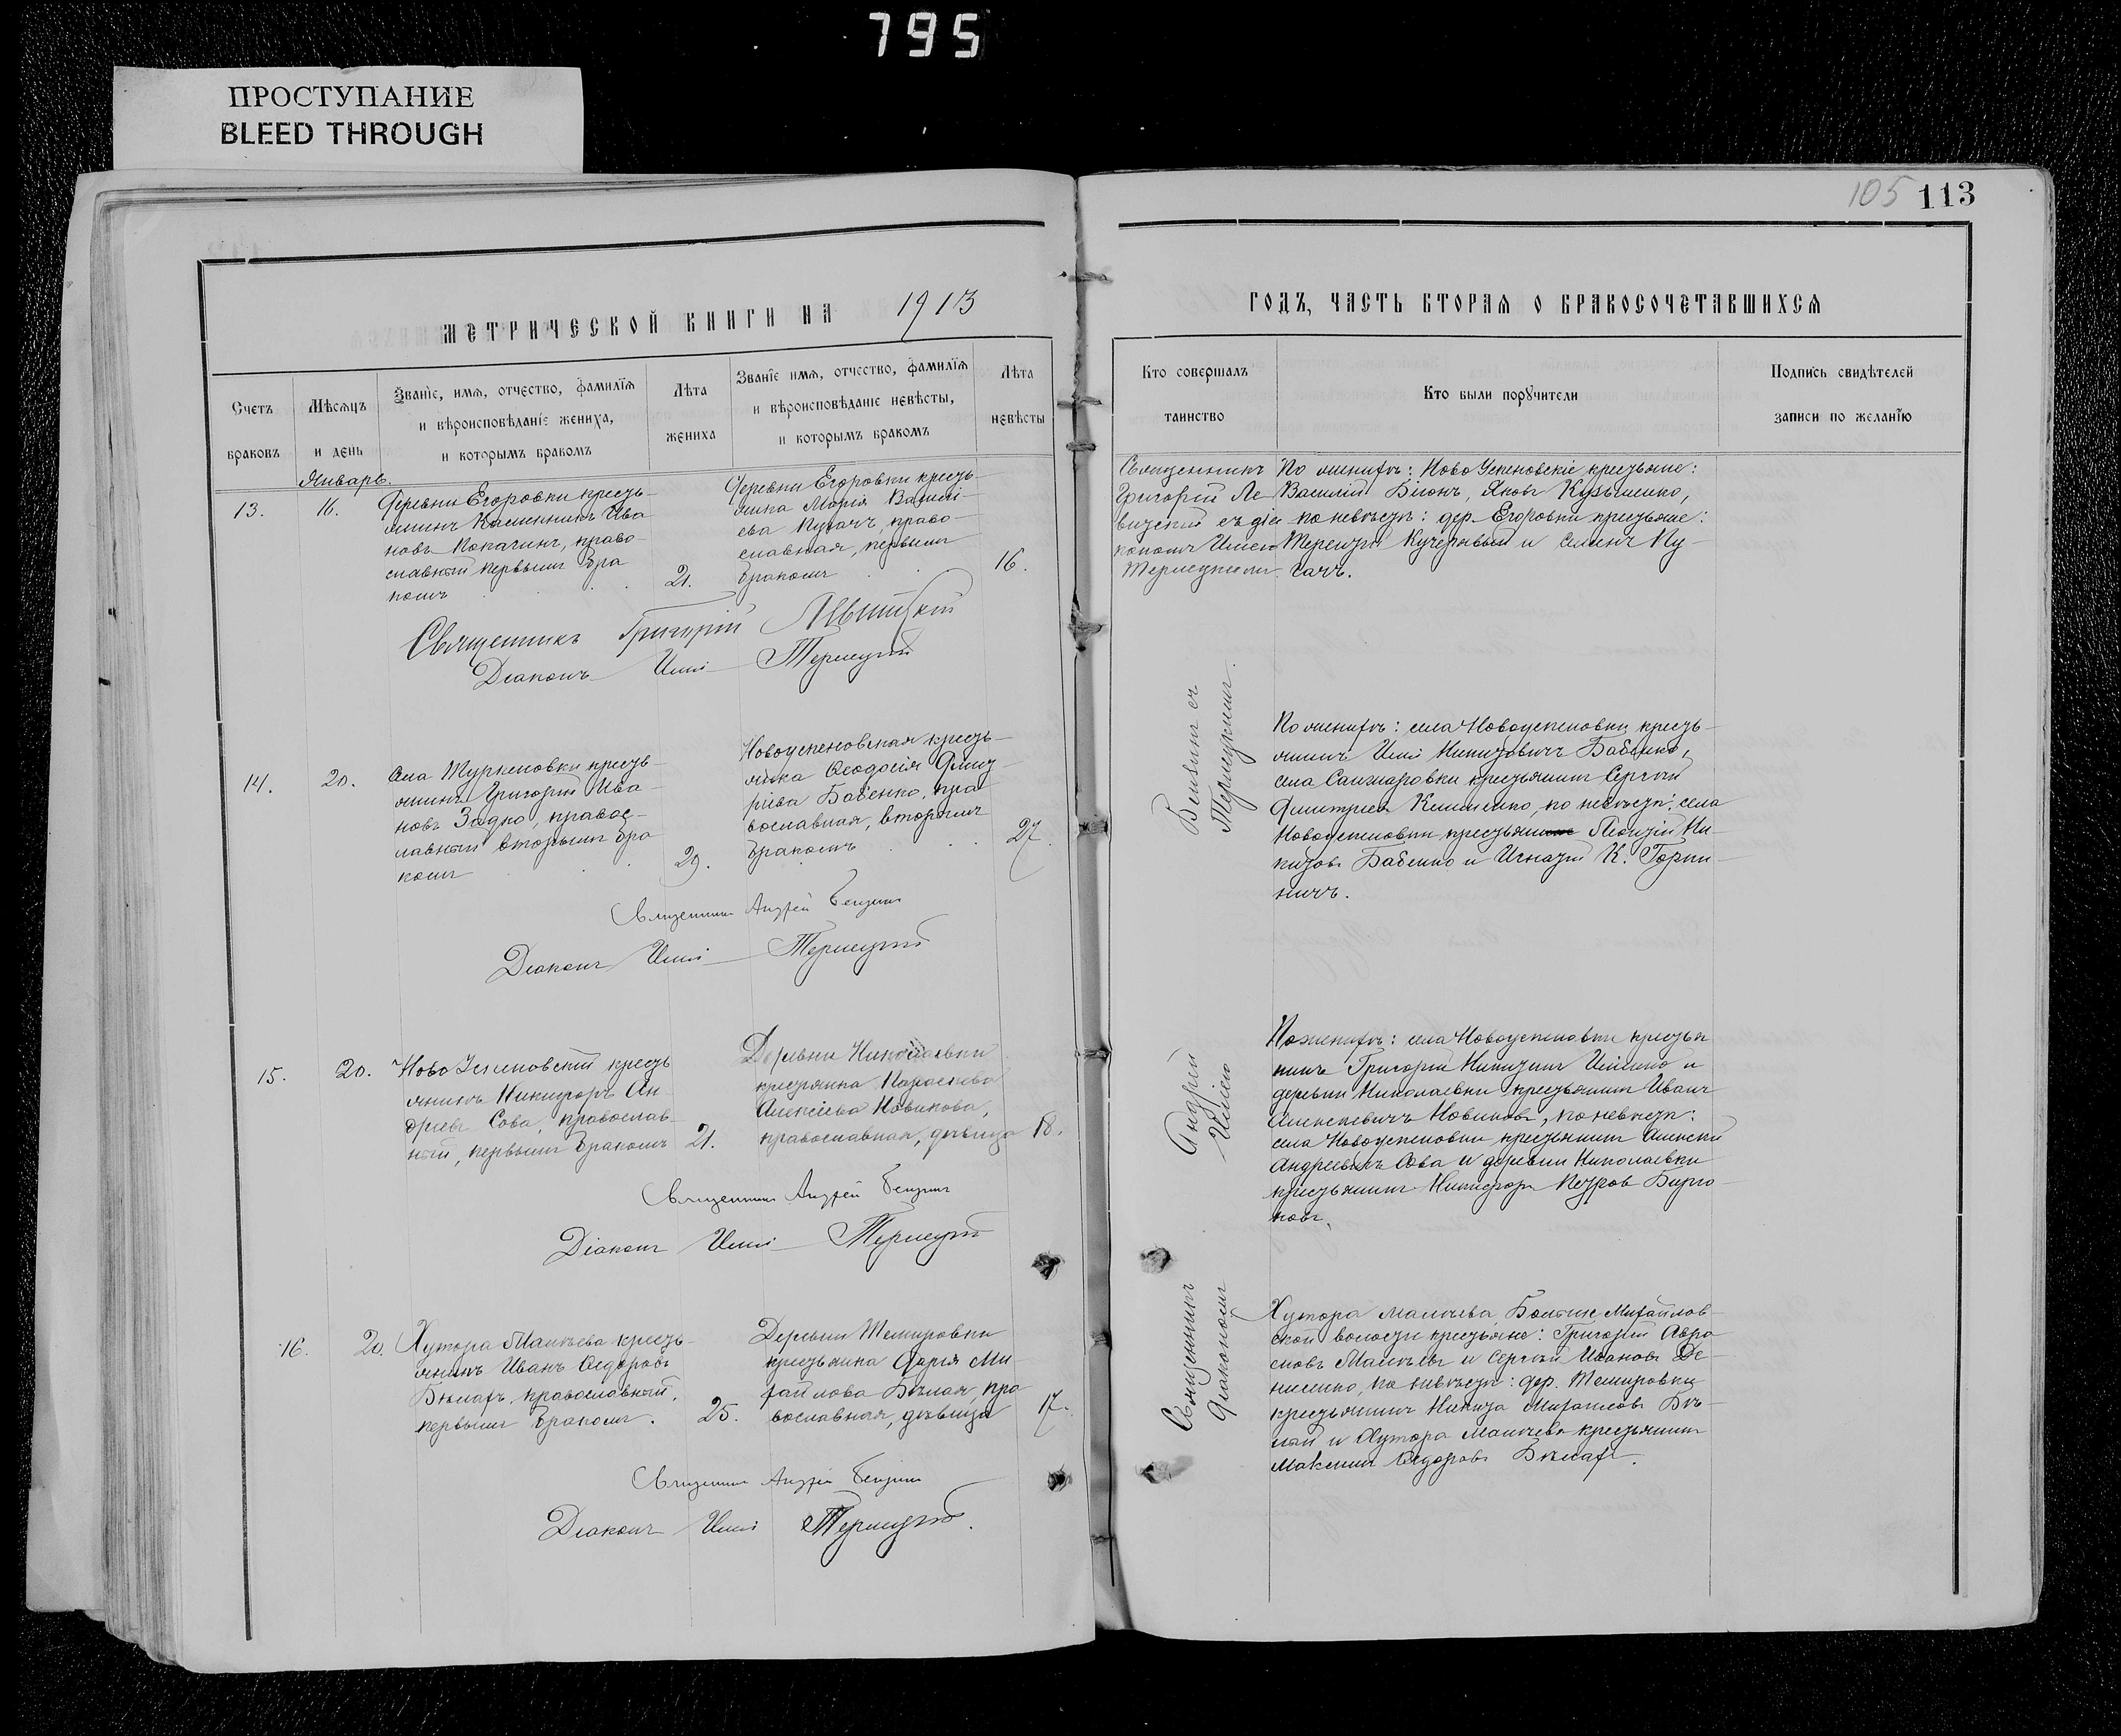 795
ПРОСТУПАНИЕ
BLEED THROUGH
105 113
МЕТРИЧЕСКОЙ КНИГИ НА 1913
ГОДЪ, ЧАСТЬ ВТОРАЯ О БРАКОСОЧЕТАВШИХСЯ
Счетъ
браковъ
Мѣсяцъ
и день
Званіе, имя, отчество, фамилія
и вѣроисповѣданіе жениха,
и которымъ бракомъ
Лѣта
жениха
Званіе имя, отчество, фамилія
и вѣроисповѣданіе невѣсты,
и которымъ бракомъ
Лѣта
невѣсты
Кто совершалъ
таинство
Кто были поручители
Подпись свидѣтелей
записи по желанію
Январь.
13.
16.
Деревни Егоровки кресть-
янинъ Ива
новъ право-
славный первымъ бра
комъ
21.
Деревни Егоровки кресть-
янка Марія Василі-
ева Пугачъ, право-
славная, первымъ
бракомъ
16.
Священникъ
Григорій Ле
вицкій съ діа
кономъ Иліею
Терлецкимъ.
По женихѣ: Ново Успеновскіе крестьяне:
Василій Яковъ Кузьменко,
по невѣстѣ: дер. Егоровки крестьяне:
Терентій Кучерявый и Семенъ Пу-
гачъ.
Священникъ Григорій Левицкій
Діаконъ Илія Терлецкій
14.
20.
Села Туркеновки кресть-
янинъ Григорій Ива-
новъ Задко, правос-
лавный вторымъ бра
комъ
29.
Новоуспеновская кресть-
янка Ѳеодосія Дмит-
ріева Бабенко, пра
вославная, вторымъ
бракомъ
27
По женихѣ: села Новоуспеновки кресть-
янинъ Илія Никитовичъ Бабенко,
села Санжаровки крестьянинъ Сергѣй
Дмитріевъ по невѣстѣ: села
Новоуспеновки Ни-
китовъ Бабенко и Игнатій К. Горпи
ничъ.
Священникъ Андрей Бенzинъ
Діаконъ Илія Терлецкій
15.
20.
Ново Успеновскій кресть
янинъ Никифоръ Ан-
дреевъ Сова, православ-
ный, первымъ бракомъ
21.
Деревни Николаевки
крестьянка Параскева
Алексѣева Новикова,
православная, дѣвица
18.
По женихѣ: села Новоуспеновки крестья
нинъ Григорій Никитинъ и
деревни Николаевки крестьянинъ Иванъ
Алексѣевичъ Новиковъ, по невѣстѣ:
села Новоуспеновки крестьянинъ Алексѣй
Андреевичъ Сова и деревни Николаевки
крестьянинъ Никифоръ Петровъ Бирю-
ковъ.
Священникъ Андрей
Діаконъ Илія Терлецкій
16.
20.
Хутора Малѣева кресть-
янинъ Иванъ Ѳедоровъ
православный,
первымъ бракомъ.
25.
Деревни Темировки
крестьянка Дарія Ми-
хайлова Бѣлая, пра
вославная, дѣвица
17.
Хутора Малѣева, Больше Михайлов-
ской волости крестьяне: Григорій Авра-
мовъ Малѣевъ и Сергѣй Ивановъ Де-
нисенко, по невѣстѣ: дер. Темировки
крестьянинъ Никита Михайловъ Бѣ-
лый и Хутора Малѣева крестьянинъ
Максимъ Ѳедоровъ
Священникъ Андрей
Діаконъ Илія Терлецкій.
Священникъ Андрей
Діакономъ Иліею
Терлецкимъ.